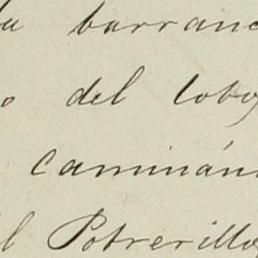 barranc
o del lobo
caminán
l Potrerillo